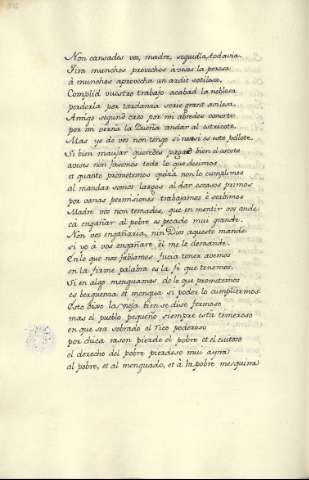 Non cansades vos, madre, seguidla, todavia.
Tira munchos provechos a veces la pereza
á munchos aprovecha un ardit sotileso.
Complid vuestro trabajo acabad la noblesa
perderla por tardanza serie grant avilesa.
Amigo segund creo por mi abredes conorte
por mi verna la Dueña andar al estricote
Mas yo de vos non tengo si non este pellote
Si bien manjar queredes pagad bien el escote
aveces non fasemos todo lo que desimos
et quanto prometemos quizá non lo cumplimos
al mandar somos largos al dar escasos primos
por vanas promisiones trabajamos é servimos
Madre vos non temades, que en mentir vos ande
ca engañar al pobre es pecado muy grande
Non vos engañaria, nin Dios aqueste mande
si yo á vos engañare él me lo demande.
En lo que nos fablamos fucia tener avemos
en la firme palabra es la fé que tenemos.
Si en algo menguamos de lo que prometemos
es berguenza et mengua si poder lo cumpliremos
Este biso la vieja bien se diso fermoso
mas el pueblo pequeño siempre está temeroso
en que sea sobrado el rico poderoso
por chica rason pierde el pobre et el cuitoso
el derecho del pobre pierdese muy ayna
al pobre, et al menguado, et à la pobre mesquina